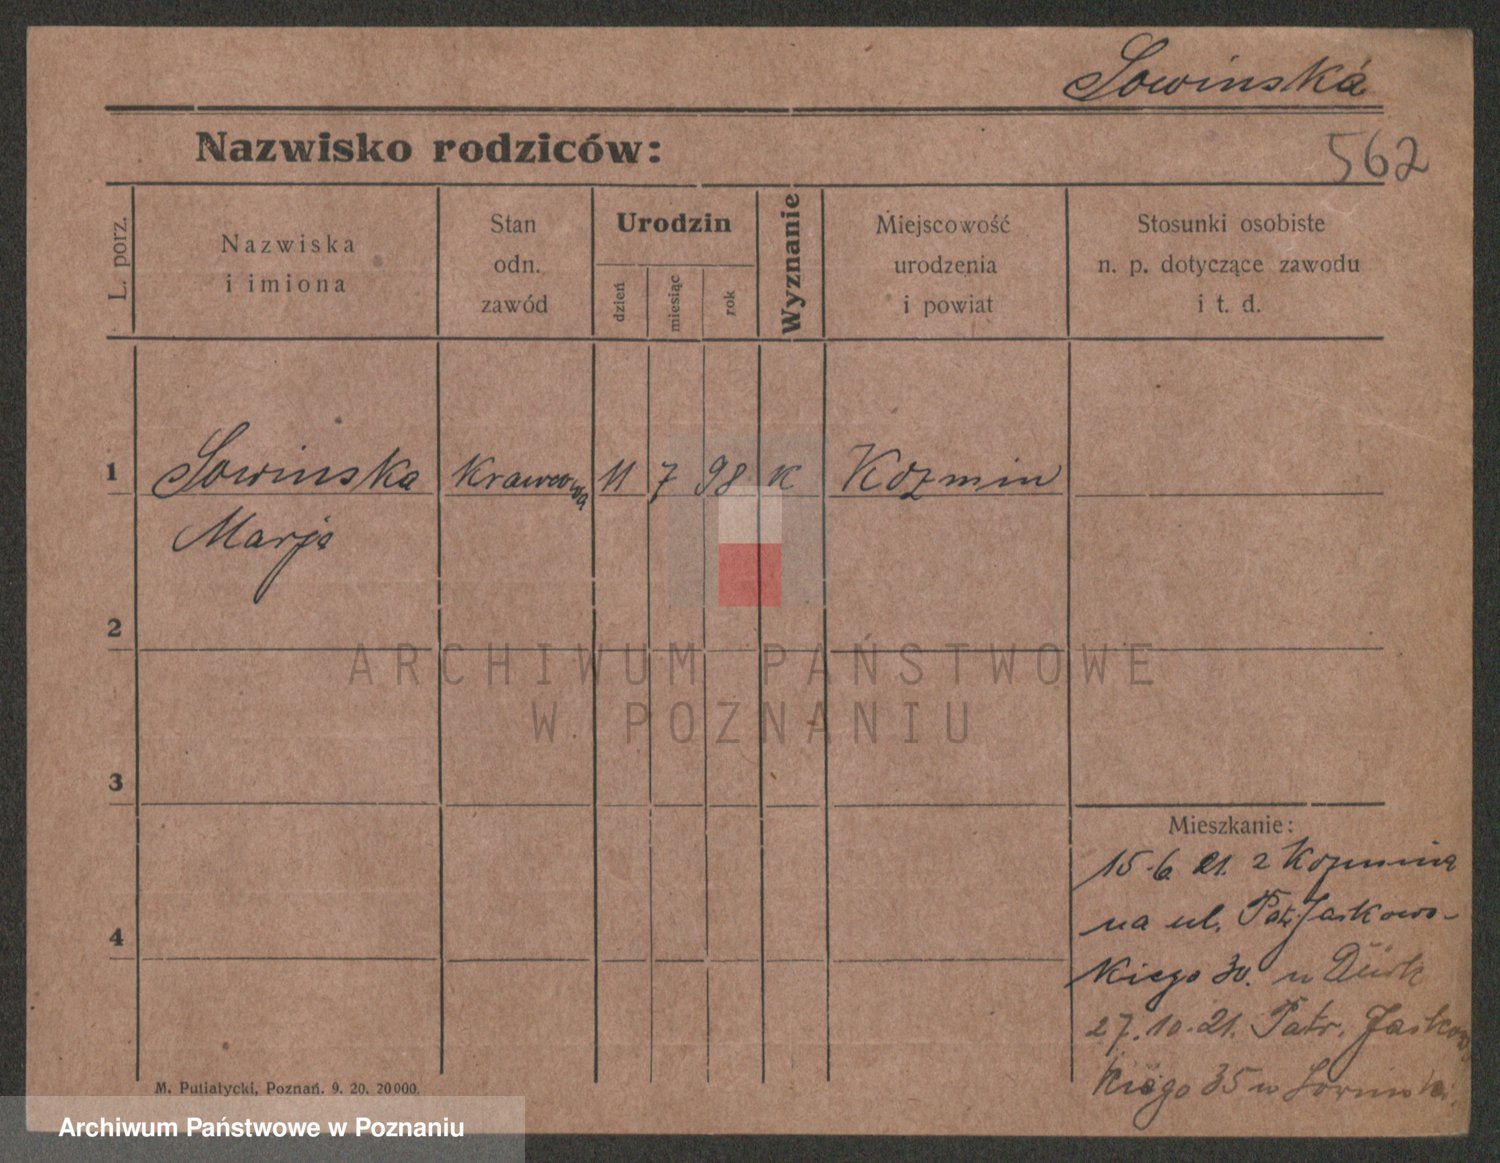 Sowinska
Nazwisko rodziców:
562
L. porz.
Nazwiska
i imiona
Stan
odn.
zawód
Urodzin
dzień
miesiąc
rok
Wyznanie
Miejscowość
urodzenia
i powiat
Stosunki osobiste
n. p. dotyczące zawodu
i t. d.
1 Sowinska Krawcowa 11 7 98 K Kozmin
Marja
2
ARCHIWUM PAŃSTWOWE
W POZNANIU
3
Mieszkanie:
15.6.21. z Kozmina
4
na ul. Patr. Jaskows-
kiego 30. u
27.10.21. Patr. Jaskows
kiego 35 u
M. Putiatycki, Poznań. 9. 20. 20000.
Archiwum Państwowe w Poznaniu